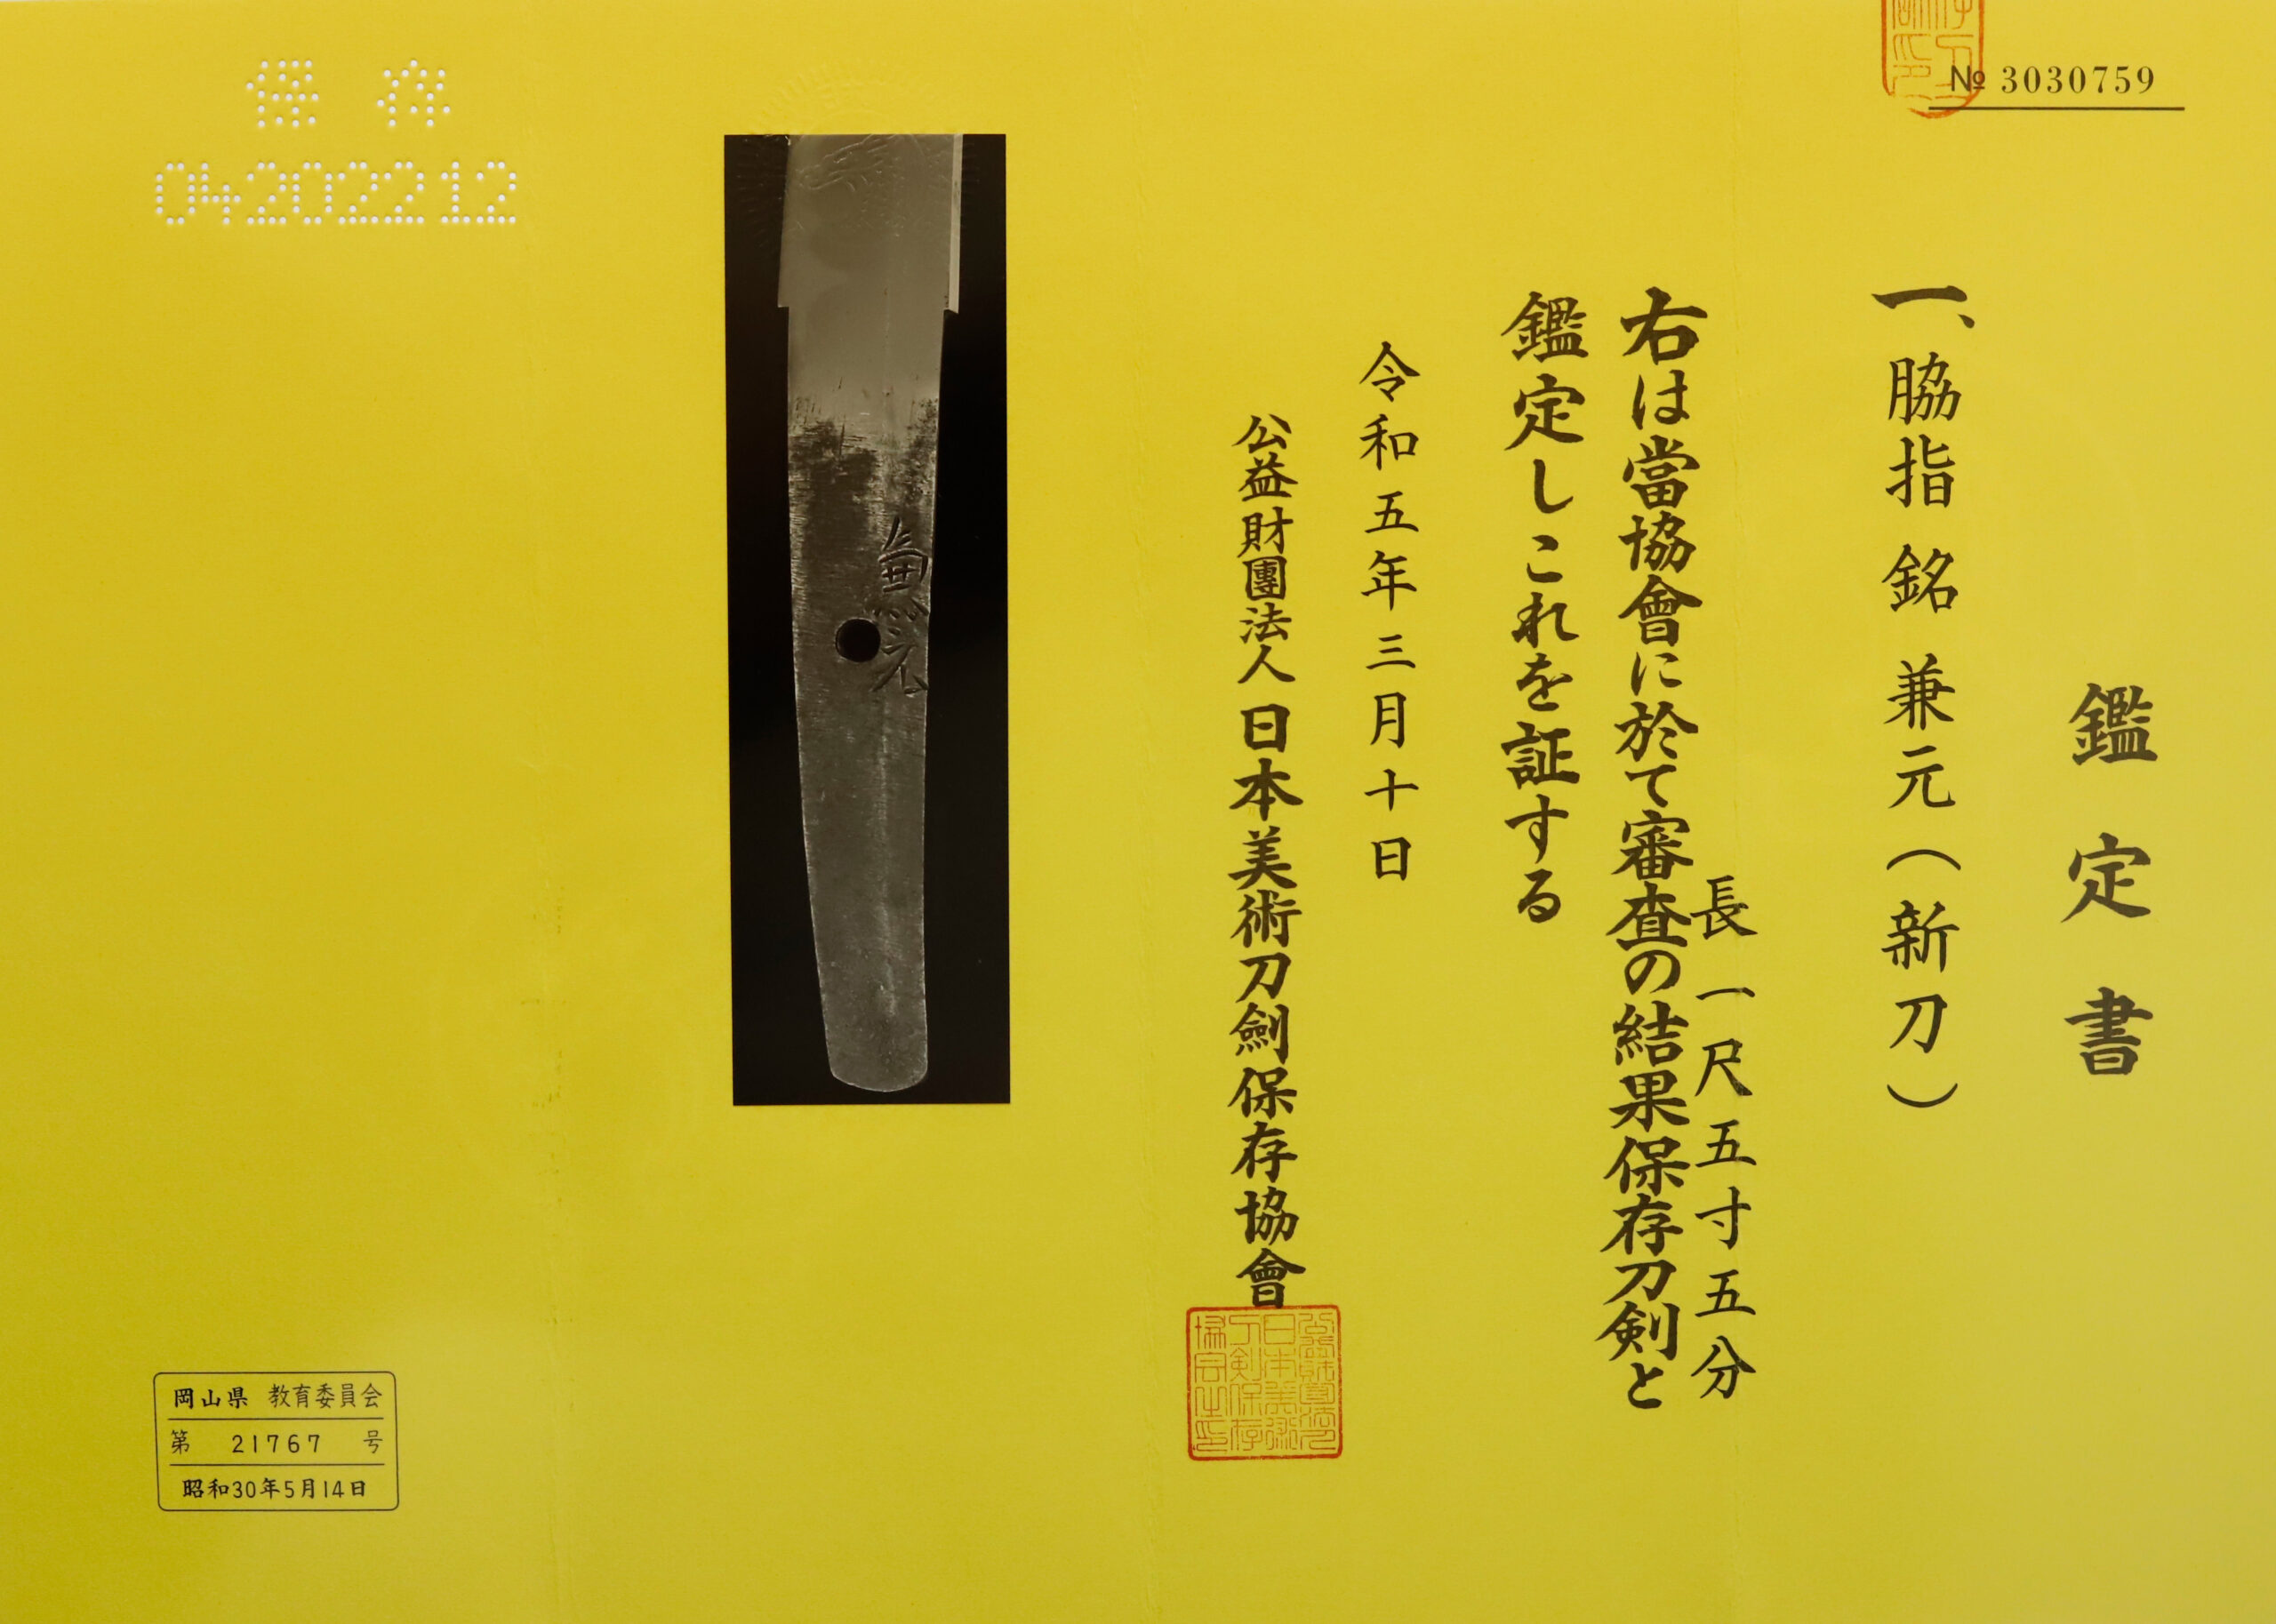 № 3030759
鑑定書
一、脇指 銘 兼元(新刀)
長 一尺五寸五分
右は當協會に於て審査の結果保存刀剣と
鑑定しこれを証する
令和五年三月十日
公益財團法人日本美術刀劍保存協會
兼元
保存
04202212
岡山県 教育委員会
第 21767 号
昭和30年5月14日